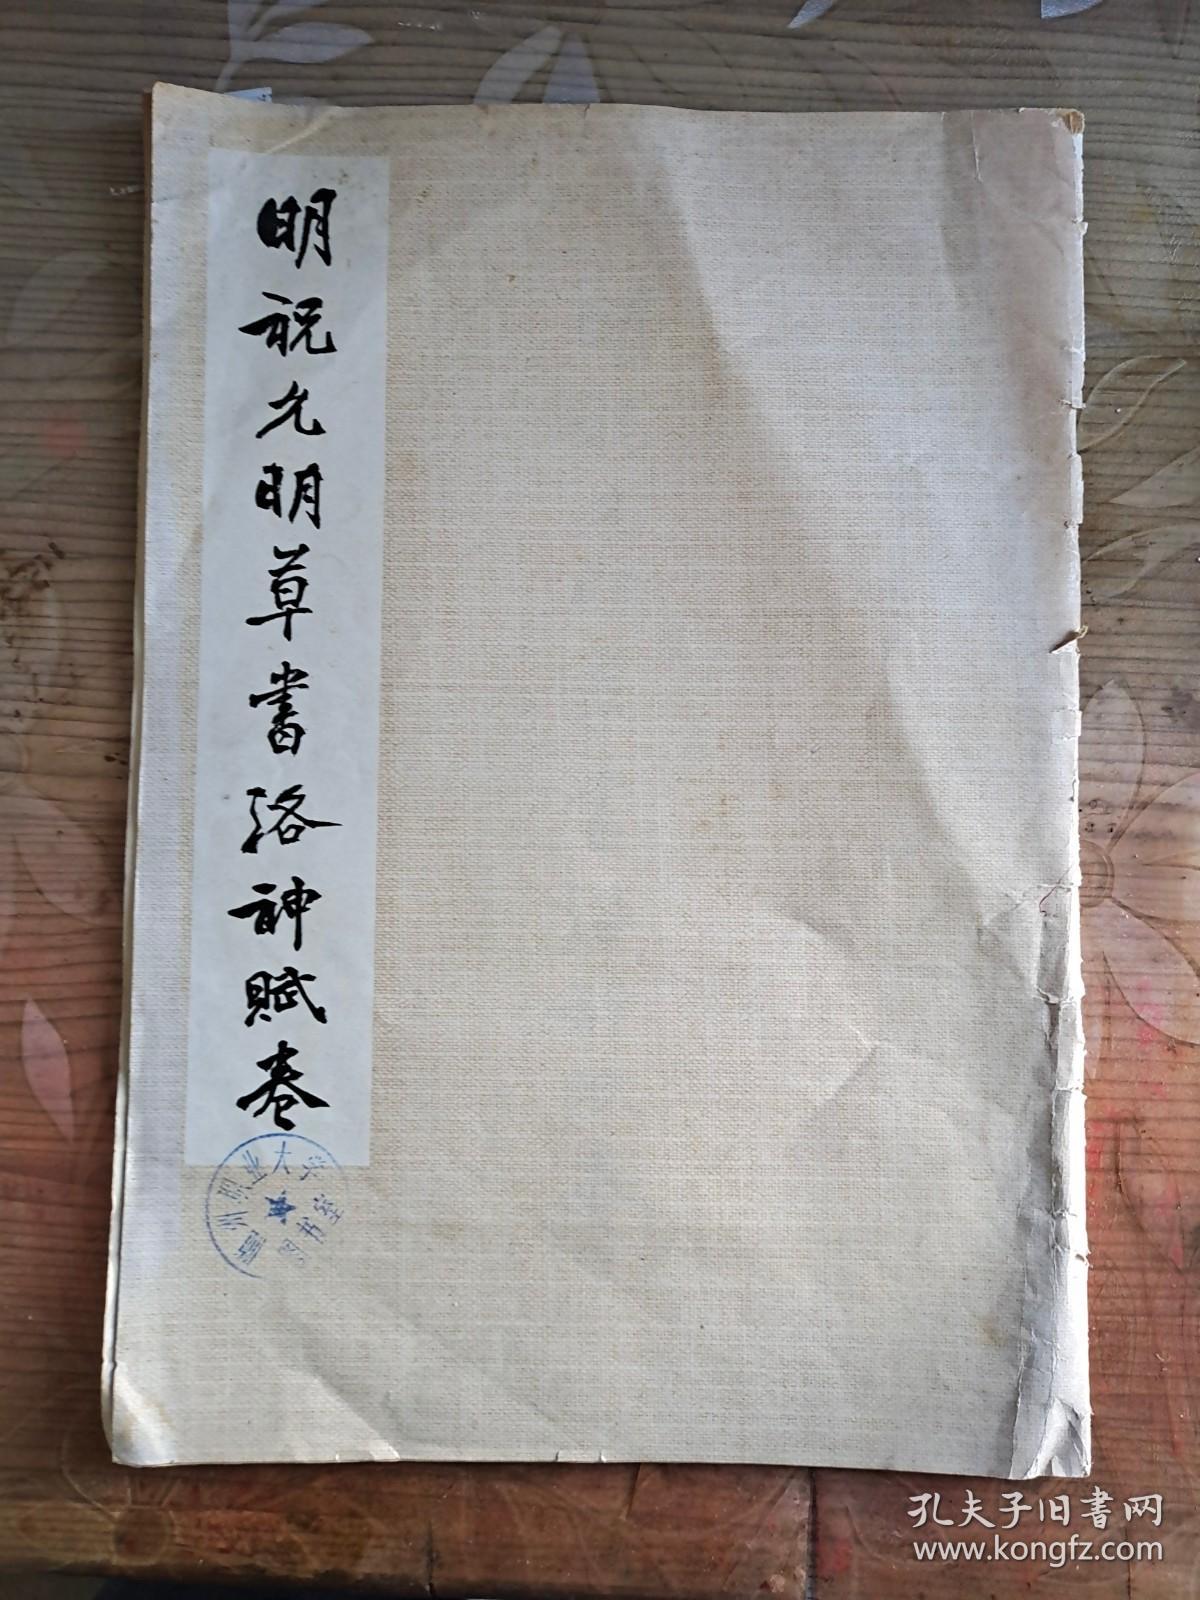 明祝允明草書洛神賦卷
州职业大学
图书室
孔夫子旧書网
www.kongfz.com